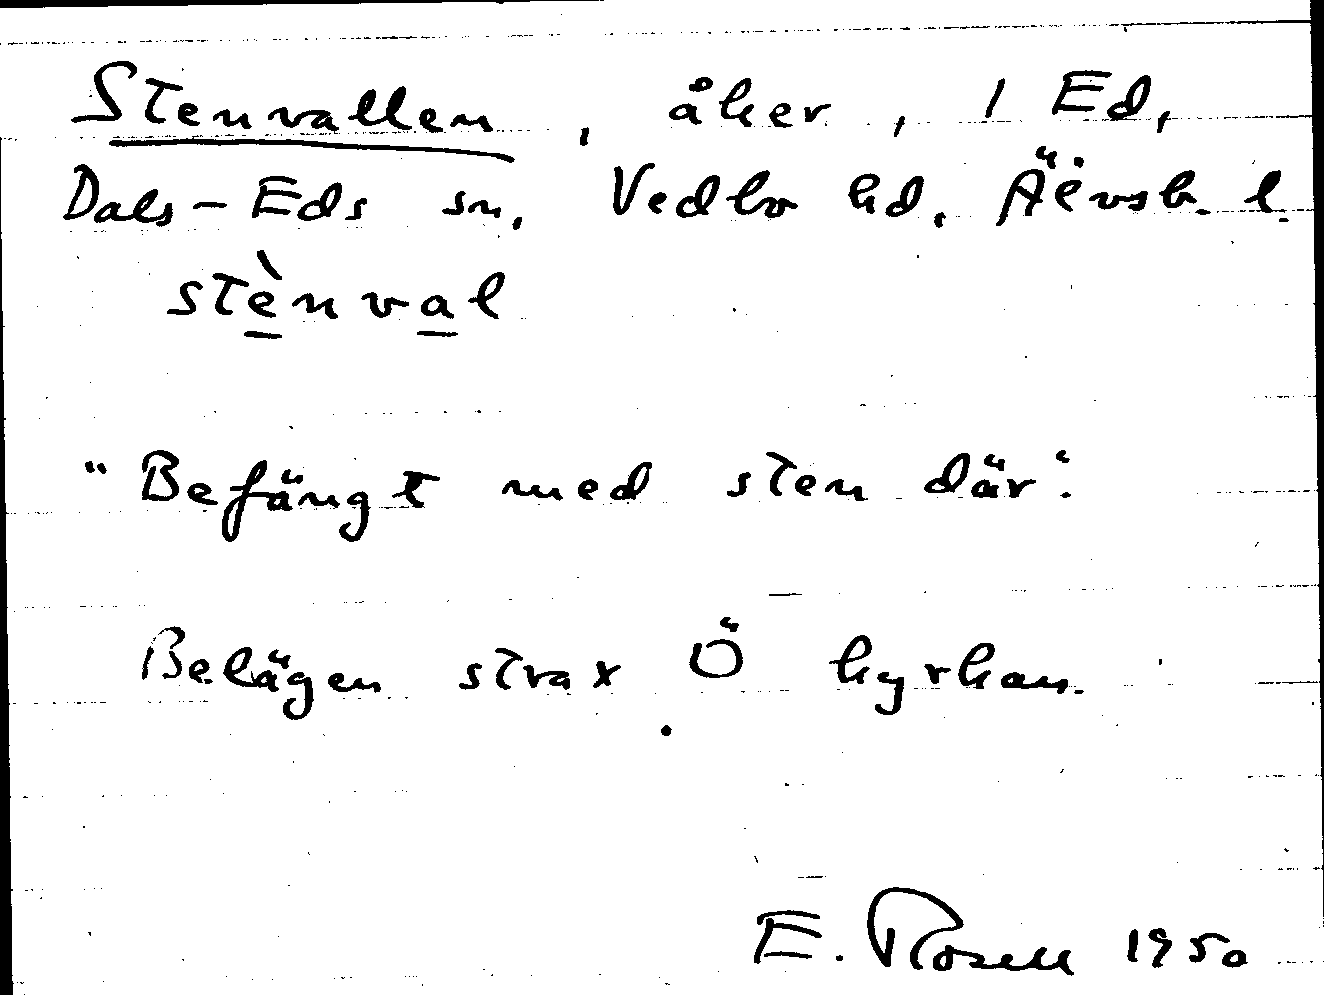 Stenvallen, åker, 1 Ed,
Dals-Eds sn, Vedbo hd, Älvsb. l.
stènval
"Befängt med sten där".
Belägen strax Ö kyrkan.
E. Rosell 1950